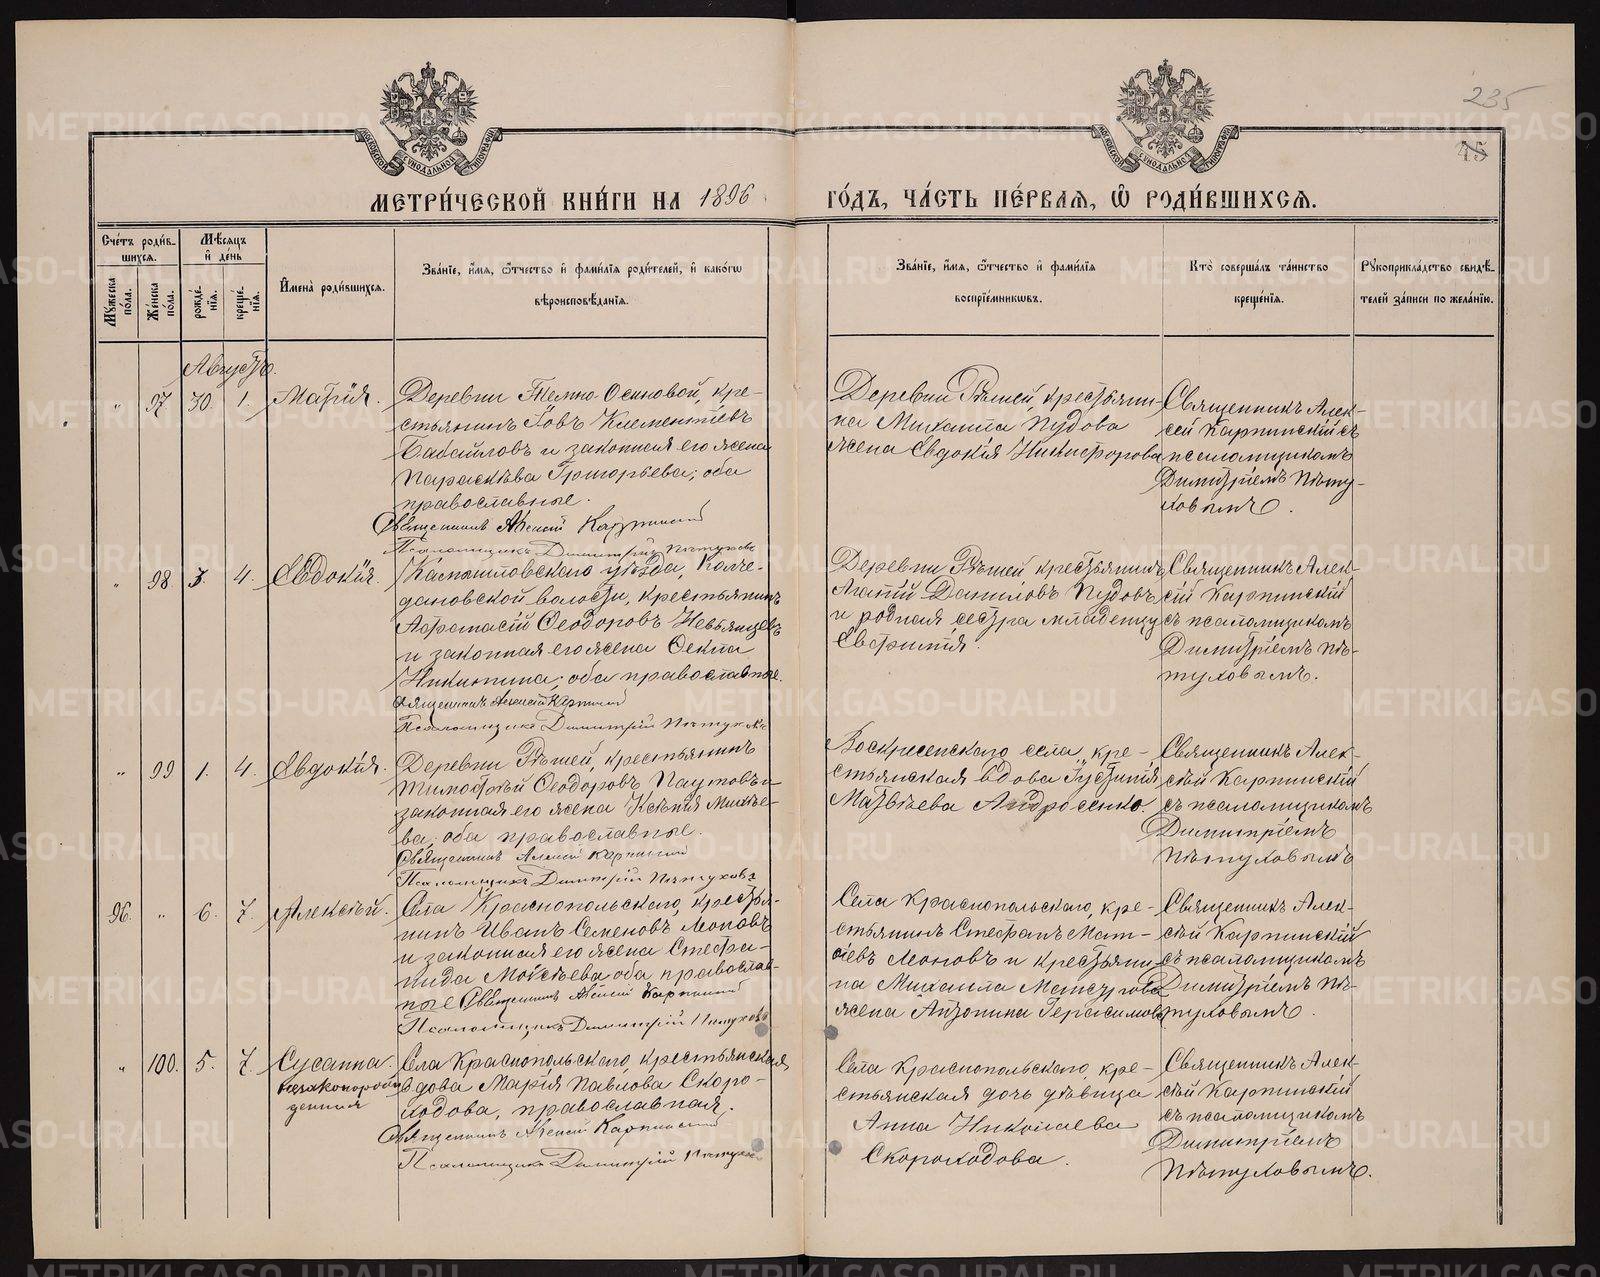 235
45
МЕТРИ́ЧЕСКОЙ КНИ́ГИ НА 1896 ГО́ДЪ, ЧА́СТЬ ПЕ́РВАЯ, Ѡ РОДИ́ВШИХСЯ.
Сче́тъ роди́вшихся.
Му́жеска по́ла.
Же́нска по́ла.
Мѣ́сяцъ и де́нь
рожде́нія.
креще́нія.
И́мена роди́вшихся.
Зва́ніе, и́мя, ѻ́тчество и фами́лія роди́телей, и како́гѡ
вѣроисповѣ́данія.
Зва́ніе, и́мя, ѻ́тчество и фами́лія
воспріе́мникѡвъ.
Кто̀ соверша́лъ та́инство
креще́нія.
Рꙋкоприкла́дство свидѣ́-
телей за́писи по жела́нію.
Августъ.
" 97 30. 1. Марія.
Деревни Темно-Осиновой, кре-
стьянинъ Іовъ Климентіевъ
Бабайловъ и законная его жена
Параскѣва Григорьева; оба
православные.
Священникъ Алексій Карпинский
Псаломщикъ Димитрій Пѣтуховъ
Деревни Рѣшей, крестьяни-
на Михаила Пудова
жена Евдокія Никифорова
Священникъ Алек-
сей Карпинскій съ
псаломщикомъ
Димитріемъ Пѣту-
ховымъ.
" 98 3. 4. Евдокія.
Камышловскаго уѣзда, Колче-
дановской волости, крестьянинъ
Афанасій Ѳеодоровъ Невьянцевъ
и законная его жена Ѳекла
Никитина; оба православные.
Священникъ Алексій Карпинский
Псаломщикъ Димитрій Пѣтуховъ
Деревни Рѣшей крестьянинъ
Агапій Даниловъ Пудовъ
и родная сестра младенцу
Евфимія.
Священникъ Алек-
сій Карпинскій
съ псаломщикомъ
Димитріемъ Пѣ-
туховымъ.
" 99 1. 4. Евдокія.
Деревни Рѣшей, крестьянинъ
Тимофѣй Ѳеодоровъ Паутовъ и
законная его жена Ксенія Михѣе-
ва; оба православные.
Священникъ Алексій Карпинский
Псаломщикъ Димитрій Пѣтуховъ
Воскресенскаго села, кре-
стьянская вдова Іустинія
Матвѣева Андросенко
Священникъ Алек-
сѣй Карпинскій
съ псаломщикомъ
Димитріемъ
Пѣтуховымъ
96. " 6. 7. Алексѣй.
Села Краснопольскаго, крестья-
нинъ Иванъ Семеновъ Моновъ
и законная его жена Стефа-
нида Моисеева оба православ-
ные Священникъ Алексій Карпинский
Псаломщикъ Димитрій Пѣтуховъ
Села Краснопольскаго, кре-
стьянинъ Стефанъ Мат-
ѳіевъ Моновъ и крестьяни-
на Михаила
жена Антонина Герасимова
Священникъ Алек-
сѣй Карпинскій
съ псаломщикомъ
Димитріемъ Пѣ-
туховымъ.
" 100. 5. 7. Сусанна.
незаконорож-
денная
Села Краснопольскаго, крестьянская
вдова Марія Павлова Скоро-
ходова, православная.
Священникъ Алексій Карпинский
Псаломщикъ Димитрій Пѣтуховъ
Села Краснопольскаго, кре-
стьянская дочь дѣвица
Анна Николаева
Скороходова.
Священникъ Алек-
сѣй Карпинскій
съ псаломщикомъ
Димитріемъ
Пѣтуховымъ.
METRIKI.GASO-URAL.RU